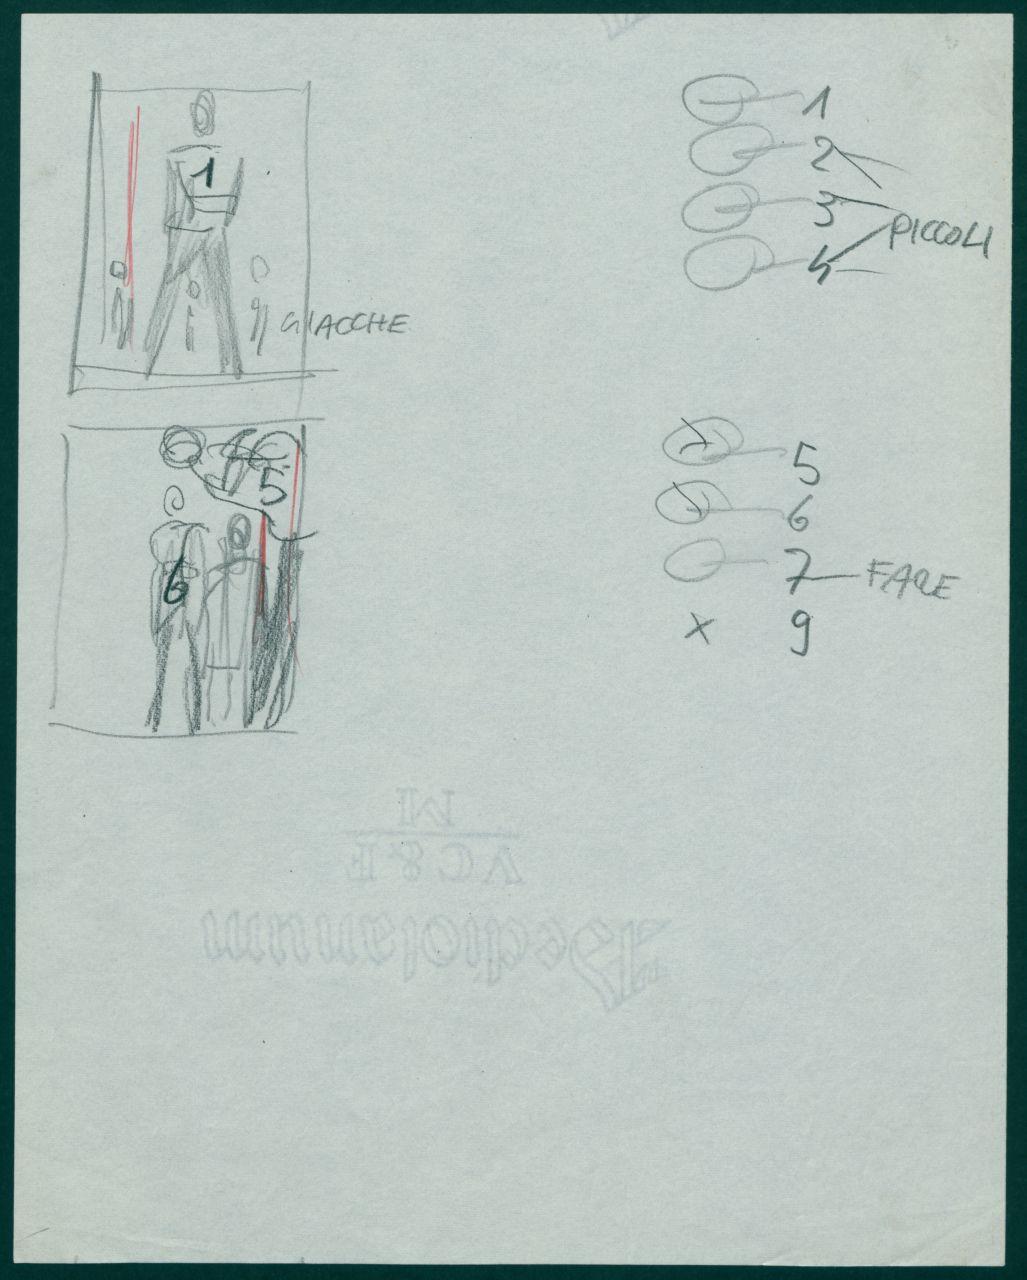 1
2
3
4
PICCOLI
1
GIACCHE
5
6
5
6
7 FARE
x 9
M
VC&F
Mediolanum